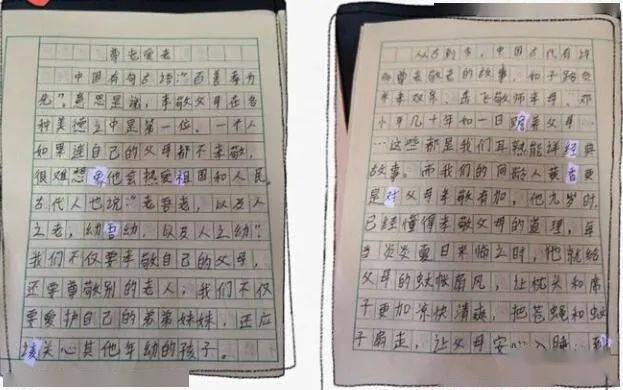 尊老爱老
中国有句古话:“百善孝为
先”。意思是说,孝敬父母在各
种美德之中是第一位。一个人
如果连自己的父母都不孝敬,
很难想象他会热爱祖国和人民。
古代人也说:“老吾老,以及人
之老,幼吾幼,以及人之幼”。
我们不仅要孝敬自己的父母,
还要尊敬别的老人;我们不仅
要爱护自己的弟弟妹妹,还应
该关心其他年幼的孩子。
从古到今,中国古代有许
尊老敬老的故事,如子路
孝双亲,岳飞敬师孝母,邓
小平几十年如一日赡养父母…
…这些都是我们耳熟能详经典
故事。而我们的同龄人黄香更
是对父母孝敬有加,他九岁时
已经懂得孝敬父母的道理,每
当炎炎夏日来临之时,他就给
父母的蚊帐扇风,让枕头和席
子更加凉快清爽,把苍蝇和蚊
子扇走,让父母安心入睡;到